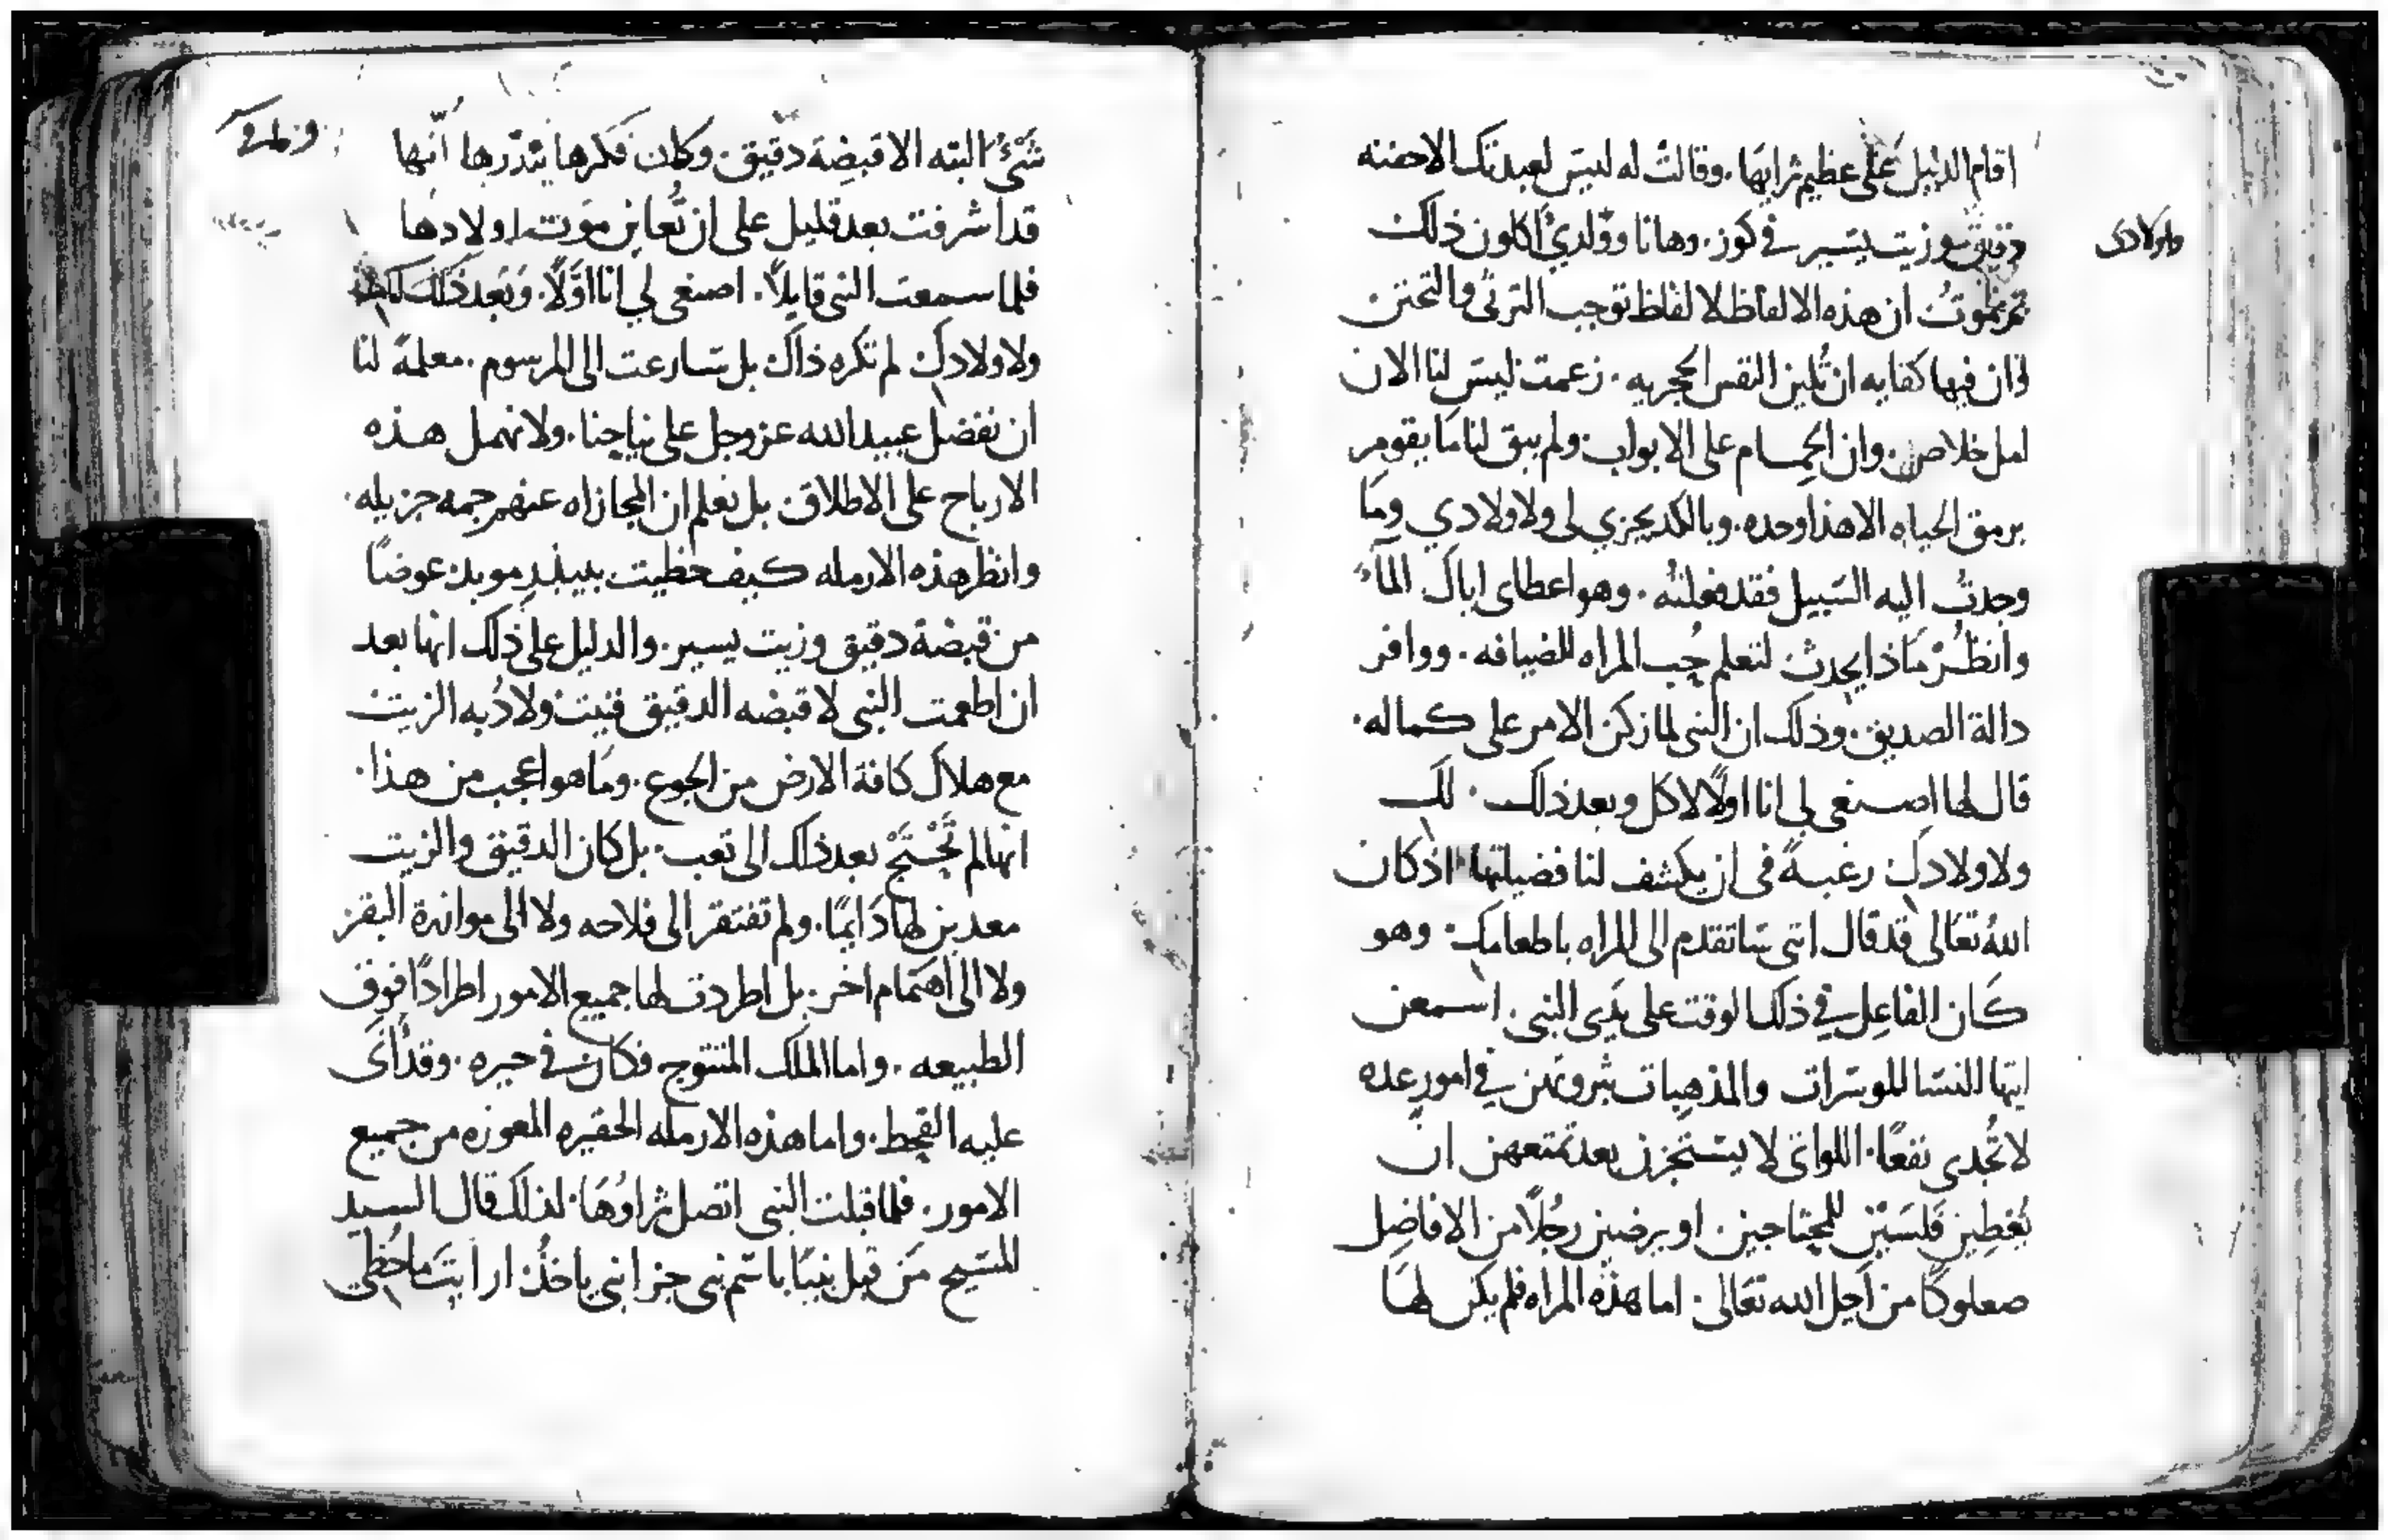 اقام الدليل على عظيم ثرايها. وقالت له ليس لعبدتك الا حفنه
دقيق وزيت يسير في كوز. وها انا وولدي اكلون ذلك
ثم نموت ان هذه الالفاظ لالفاظ توجب الترثي والتحنن
وان فيها كفايه ان تلين النفس الحجريه. زعمت ليس لنا الان
امل خلاص. وان الحمام على الابواب ولم يبق لنا ما يقوم
برمق الحياه الا هذا وحده. وبالكد يجزي لي ولاولادي وما
وجدت اليه السبيل فقد فعلته. وهو اعطاي اياك المآء
وانظر ماذا يحدث لتعلم حب المراه للضيافه. ووافر
دالة الصديق. وذلك ان النبي لما زكن الامر على كماله.
قال لها اصنعي لي انا اولًا لاكل وبعد ذلك. لك
ولاولادك رغبةً في ان يكشف لنا فضيلتها اذ كان
الله تعالى قد قال انني ساتقدم الى المراه باطعامك. وهو
كان الفاعل في ذلك الوقت على يدي النبي. اسمعن
ايتها النسا الموسرات والمذهبات ثروتهن في امور عده
لا تجدي نفعًا. اللواتي لا يستجزن بعد تمتعهن ان
يعطين فلسين للمحتاجين. او يرضين رجلًا من الافاضل
صعلوكًا من اجل الله تعالى. اما هذه المراه فلم يكن لها
واولادي
شيءٌ البته الا قبضة دقيق. وكان فكرها ينذرها انها
قد اشرفت بعد قليل على ان تعاين موت اولادها
فلما سمعت النبي قايلًا. اصنعي لي انا اولًا. وبعد ذلك لك
ولاولادك لم تكره ذاك بل سارعت الى المرسوم. معلمة لنا
ان نفضل عبيد الله عز وجل على نياحنا. ولا نهمل هذه
الارباح على الاطلاق بل نعلم ان المجازاه عنهم جمه جزيله.
وانظر هذه الارمله كيف حظيت ببيلدر موبد عوضًا
من قبضة دقيق وزيت يسير. والدليل على ذلك انها بعد
ان اطعمت النبي لا قبضه الدقيق فنيت ولا دبه الزيت
مع هلاك كافة الارض من الجوع. وما هو اعجب من هذا.
انها لم تحتج بعد ذلك الى تعب. بل كان الدقيق والزيت
معدين لها دايمًا. ولم تفتقر الى فلاحه ولا الى موازرة البقر
ولا الى اهتمام اخر. بل اطردت لها جميع الامور اطرادًا فوق
الطبيعه. واما الملك المتتوج فكان في حيره. وقد اتى
عليه القحط. واما هذه الارمله الحقيره المعوزه من جميع
الامور. فلما قبلت النبي اتصل ثراوها. لذلك قال السيد
المسيح من قبل نبيًا باسم نبي جزا نبي ياخذ. ارايت ما حظي